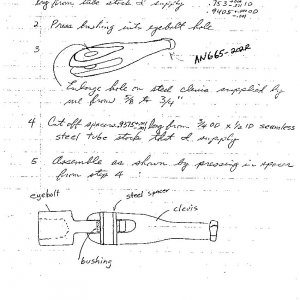 long from tube stock I supply .753 ID
.9405 OD
2. Press bushing into eyebolt hole
3
AN665-202R
Enlarge hole on steel clevis supplied by
me from 5/8 to 3/4"
4. Cut off spacers .9575 long from 3/4 OD x 1/2 ID seamless
steel tube stock that I supply
5 Assemble as shown by pressing in spacer
from step 4
eyebolt
steel spacer
clevis
bushing